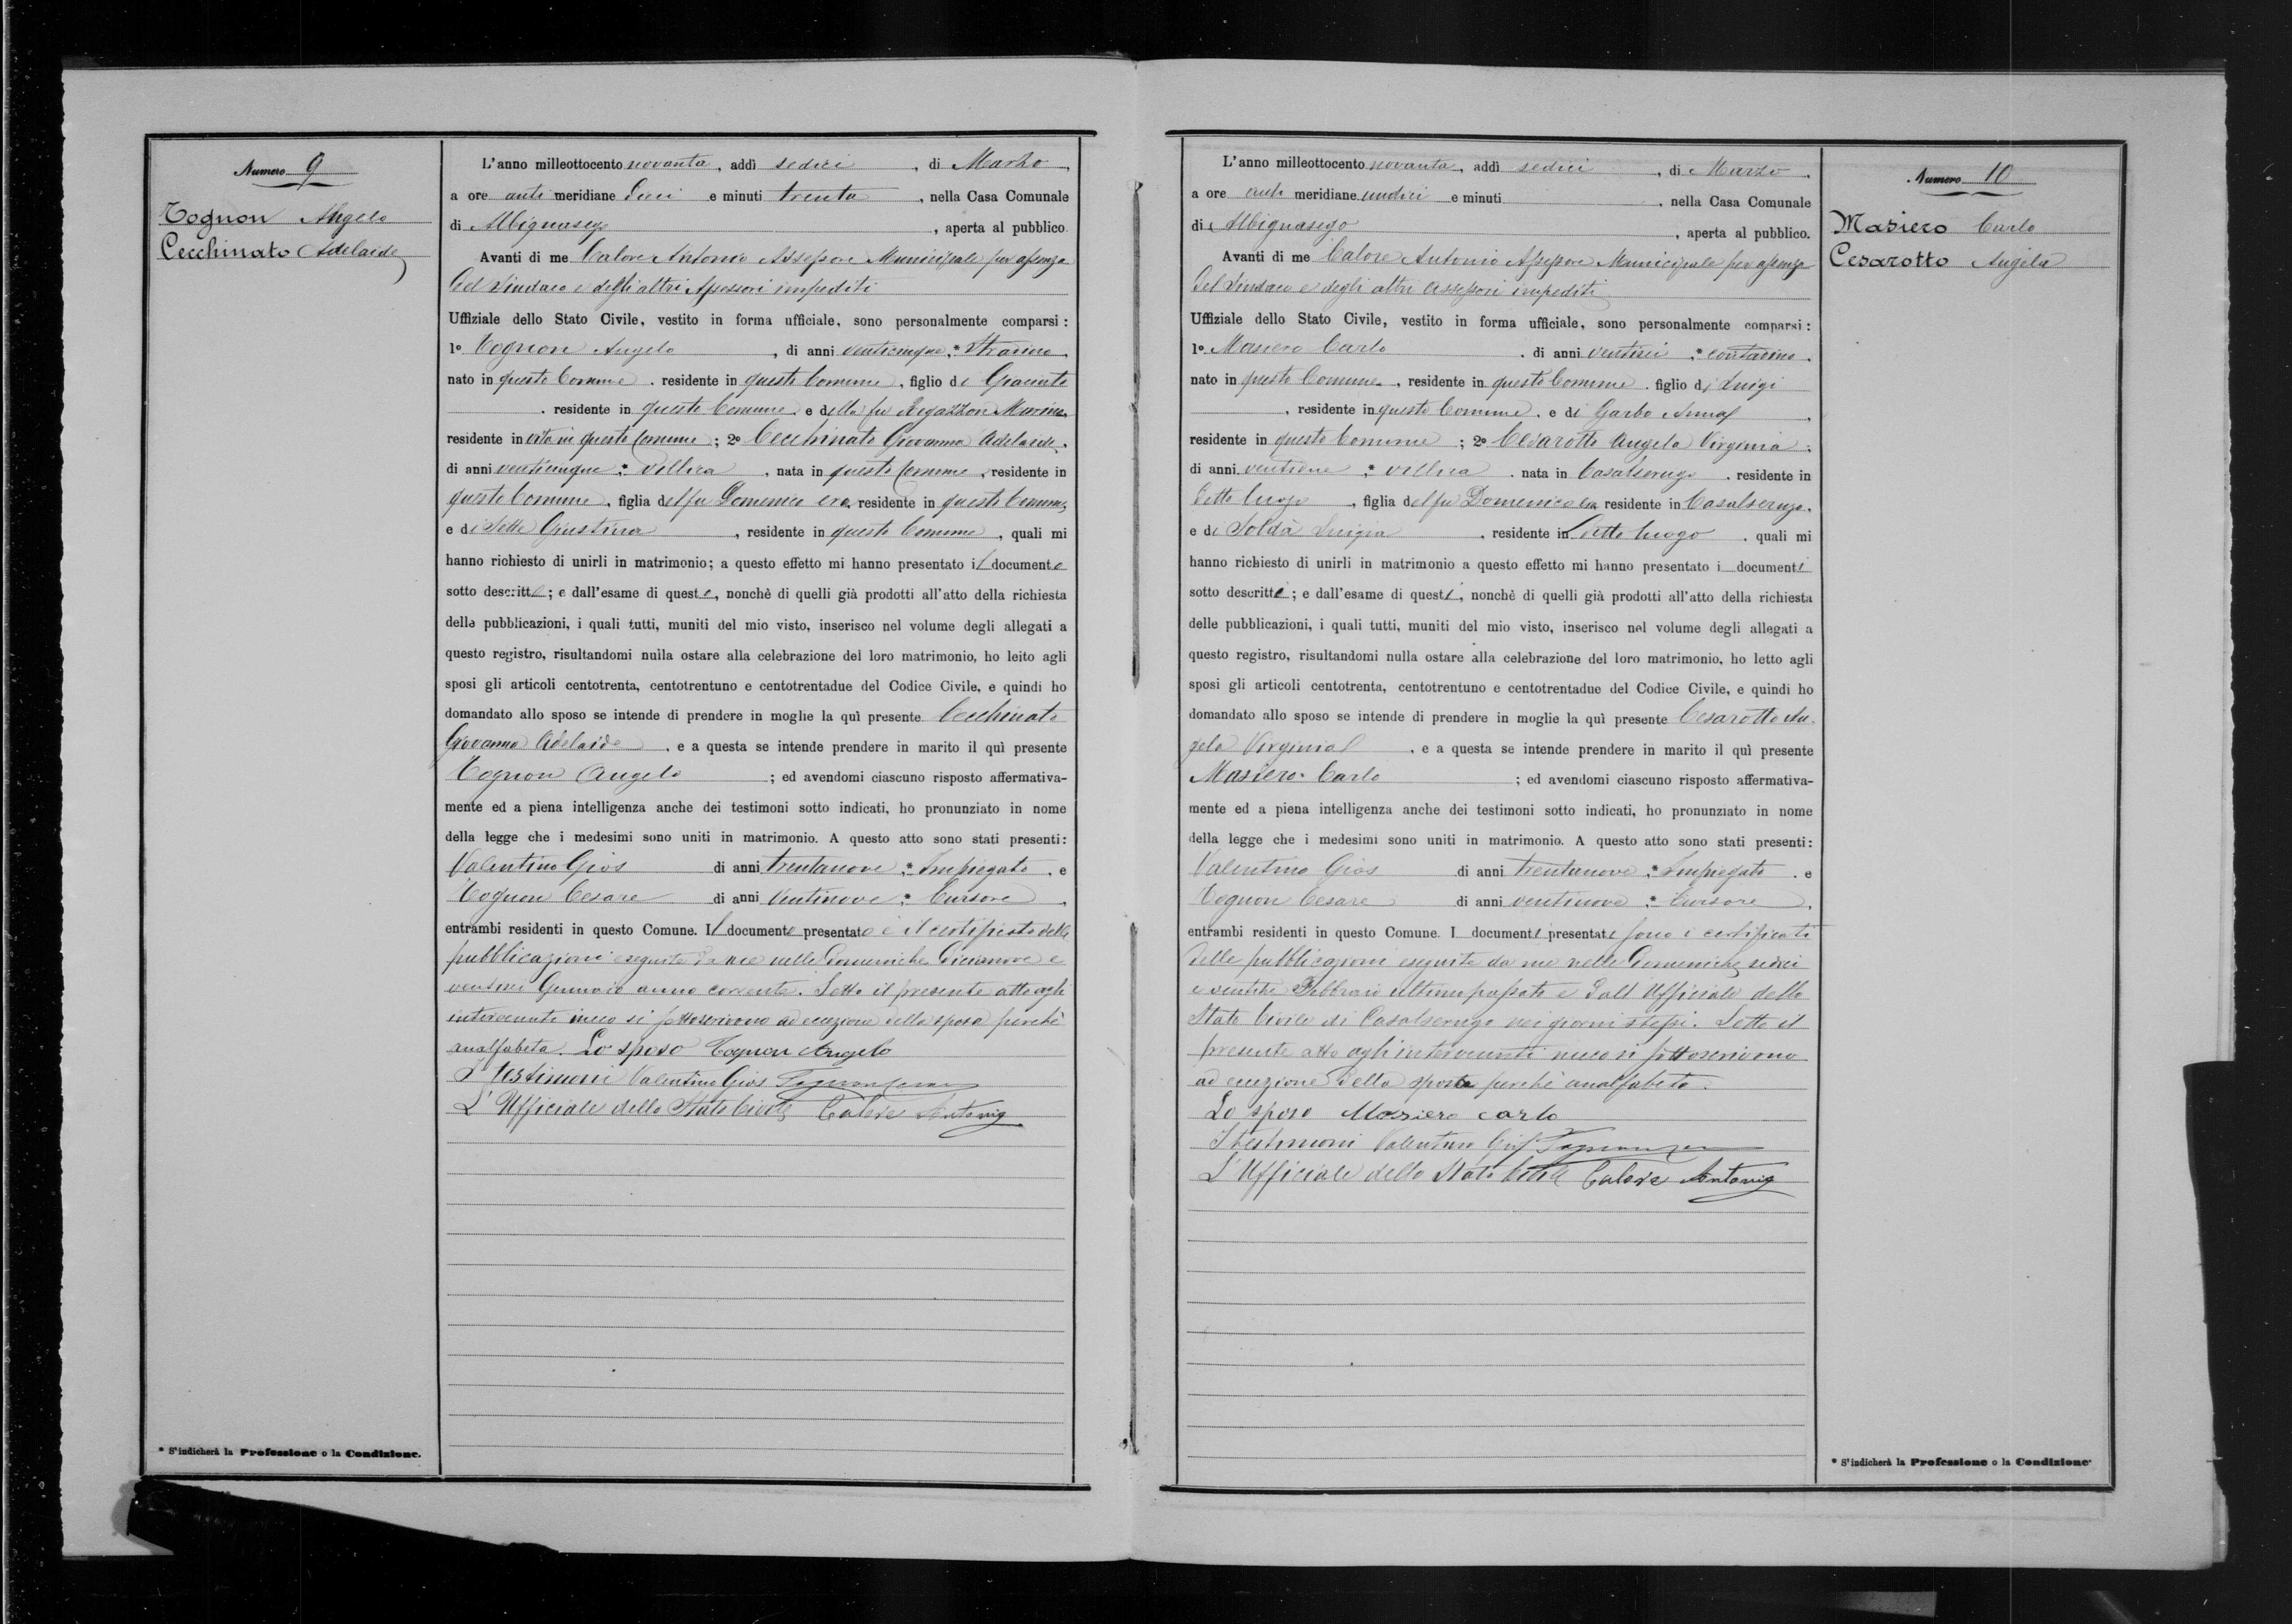 Numero 9
Tognon Angelo
Cecchinato Adelaide
L'anno milleottocento novanta, addì sedici, di Marzo,
a ore anti meridiane dieci e minuti trenta, nella Casa Comunale
di Albignasego, aperta al pubblico.
Avanti di me Calore Antonio Assessore Municipale per assenza
del Sindaco e degli altri Assessori impediti
Uffiziale dello Stato Civile, vestito in forma ufficiale, sono personalmente comparsi:
1º Tognon Angelo, di anni venticinque, *
nato in questo Comune, residente in questo Comune, figlio di Giacinto
, residente in questo Comune, e della fu Regazzon Marina,
residente in vita in questo Comune; 2º Cecchinato Giovanna Adelaide,
di anni venticinque, * villica, nata in questo Comune, residente in
questo Comune, figlia del fu Domenico era residente in questo Comune,
e di Sette Giustina, residente in questo Comune, quali mi
hanno richiesto di unirli in matrimonio; a questo effetto mi hanno presentato il documento
sotto descritto; e dall'esame di questo, nonchè di quelli già prodotti all'atto della richiesta
delle pubblicazioni, i quali tutti, muniti del mio visto, inserisco nel volume degli allegati a
questo registro, risultandomi nulla ostare alla celebrazione del loro matrimonio, ho letto agli
sposi gli articoli centotrenta, centotrentuno e centotrentadue del Codice Civile, e quindi ho
domandato allo sposo se intende di prendere in moglie la quì presente Cecchinato
Giovanna Adelaide, e a questa se intende prendere in marito il quì presente
Tognon Angelo; ed avendomi ciascuno risposto affermativa-
mente ed a piena intelligenza anche dei testimoni sotto indicati, ho pronunziato in nome
della legge che i medesimi sono uniti in matrimonio. A questo atto sono stati presenti:
Valentino Gios di anni trentanove, * Impiegato, e
Tognon Cesare di anni ventinove, * Cursore,
entrambi residenti in questo Comune. Il documento presentato è il certificato delle
pubblicazioni eseguite da me nelle Domeniche diecinove e
ventisei Gennaio anno corrente. Letto il presente atto agli
intervenuti meco si sottoscrivono ad eccezione della sposa perchè
analfabeta. Lo sposo Tognon Angelo
I Testimoni Valentino Gios Tognon Cesare
L'Ufficiale dello Stato Civile Calore Antonio
* S'indicherà la Professione o la Condizione.
Numero 10
Masiero Carlo
Cesarotto Angela
L'anno milleottocento novanta, addì sedici, di Marzo,
a ore anti meridiane undici e minuti, nella Casa Comunale
di Albignasego, aperta al pubblico.
Avanti di me Calore Antonio Assessore Municipale per assenza
del Sindaco e degli altri Assessori impediti
Uffiziale dello Stato Civile, vestito in forma ufficiale, sono personalmente comparsi:
1º Masiero Carlo, di anni ventisei, * contadino,
nato in questo Comune, residente in questo Comune, figlio di Luigi
, residente in questo Comune, e di Garbo Anna,
residente in questo Comune; 2º Cesarotto Angela Virginia,
di anni ventinove, * villica, nata in Casalserugo, residente in
detto luogo, figlia del fu Domenico era residente in Casalserugo,
e di Soldà Luigia, residente in detto luogo, quali mi
hanno richiesto di unirli in matrimonio a questo effetto mi hanno presentato i documenti
sotto descritti; e dall'esame di questi, nonchè di quelli già prodotti all'atto della richiesta
delle pubblicazioni, i quali tutti, muniti del mio visto, inserisco nel volume degli allegati a
questo registro, risultandomi nulla ostare alla celebrazione del loro matrimonio, ho letto agli
sposi gli articoli centotrenta, centotrentuno e centotrentadue del Codice Civile, e quindi ho
domandato allo sposo se intende di prendere in moglie la quì presente Cesarotto An-
gela Virginia, e a questa se intende prendere in marito il quì presente
Masiero Carlo; ed avendomi ciascuno risposto affermativa-
mente ed a piena intelligenza anche dei testimoni sotto indicati, ho pronunziato in nome
della legge che i medesimi sono uniti in matrimonio. A questo atto sono stati presenti:
Valentino Gios di anni trentanove, * Impiegato, e
Tognon Cesare di anni ventinove, * Cursore,
entrambi residenti in questo Comune. I documenti presentati sono i certificati
delle pubblicazioni eseguite da me nelle Domeniche sedici
e ventitre Febbraio ultimo passato e dall'Ufficiale dello
Stato Civile di Casalserugo nei giorni stessi. Letto il
presente atto agli intervenuti meco si sottoscrivono
ad eccezione della sposa perchè analfabeta.
Lo sposo Masiero Carlo
I testimoni Valentino Gios Tognon Cesare
L'Ufficiale dello Stato Civile Calore Antonio
* S'indicherà la Professione o la Condizione